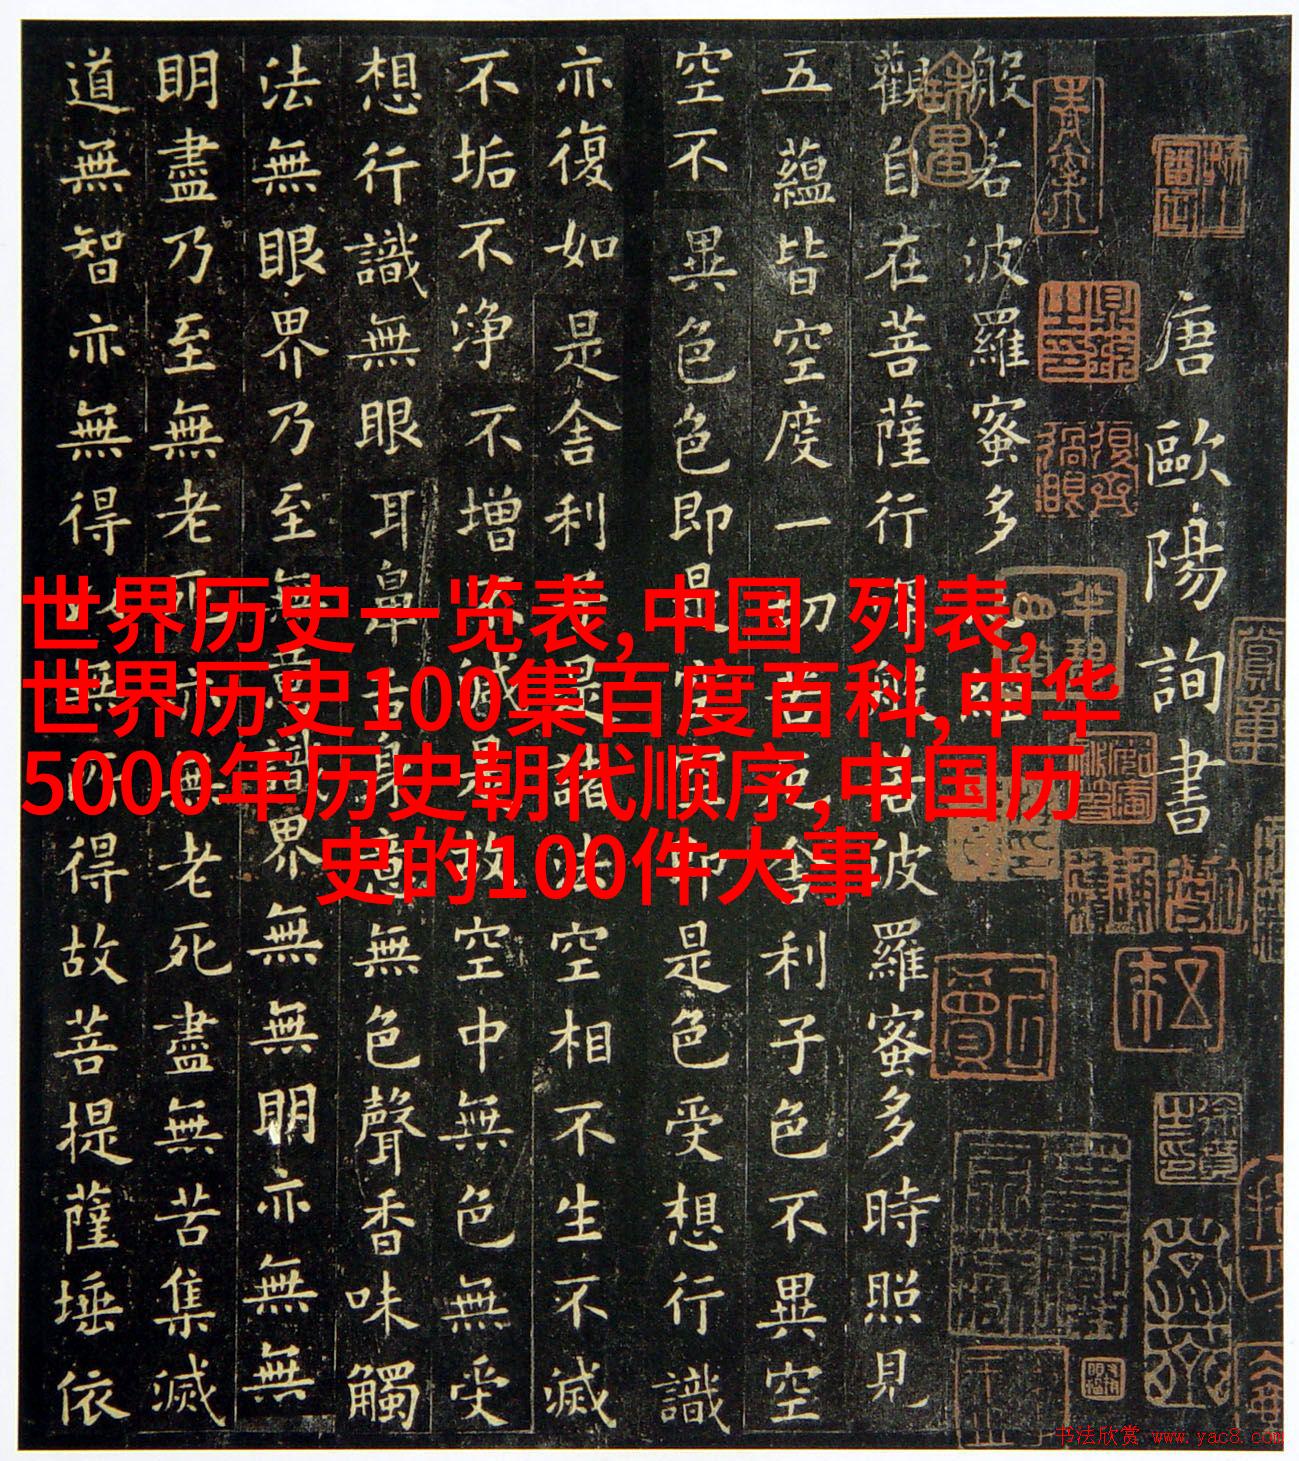 唐歐陽詢書
般若波羅蜜多經
觀自在菩薩行深般若波羅蜜多時照見
五蘊皆空度一切苦厄舍利子色不異空
空不異色色即是空空即是色受想行識
亦復如是舍利子是諸法空相不生不滅
不垢不淨不增不減是故空中無色無受
想行識無眼耳鼻舌身意無色聲香味觸
法無眼界乃至無意識界無無明亦無無
明盡乃至無老死亦無老死盡無苦集滅
道無智亦無得以無所得故菩提薩埵依
世界历史一览表,中国 列表,
世界历史100集百度百科,中华
5000年历史朝代顺序,中国历
史的100件大事
书法欣赏 www.yac8.com